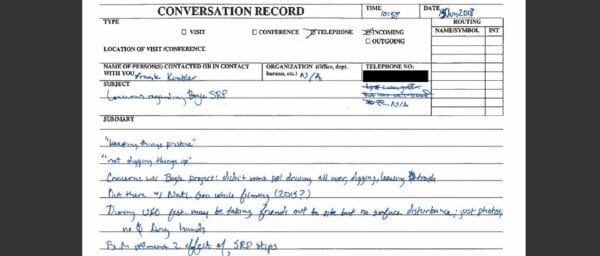 CONVERSATION RECORD
TIME
10:57
DATE
2013
TYPE
VISIT
CONFERENCE
TELEPHONE
INCOMING
OUTGOING
ROUTING
NAME/SYMBOL
INT
LOCATION OF VISIT/CONFERENCE
NAME OF PERSON(S) CONTACTED OR IN CONTACT
WITH YOU
Frank Kimbler
ORGANIZATION (Office, dept.
bureau, etc.) N/A
TELEPHONE NO:
SUBJECT
Concerns regarding Bogle SRP
N/A
SUMMARY
"keeping things pristine"
"not digging things up"
Concerns w/ Bogle project: didn't want ppl driving all over, digging, leaving
Out there w/ Nat'l Geo while filming
During UFO fest may be taking friends out to site but no surface disturbance; just photos;
no $ hands
BLM 2 effect of SRP stips